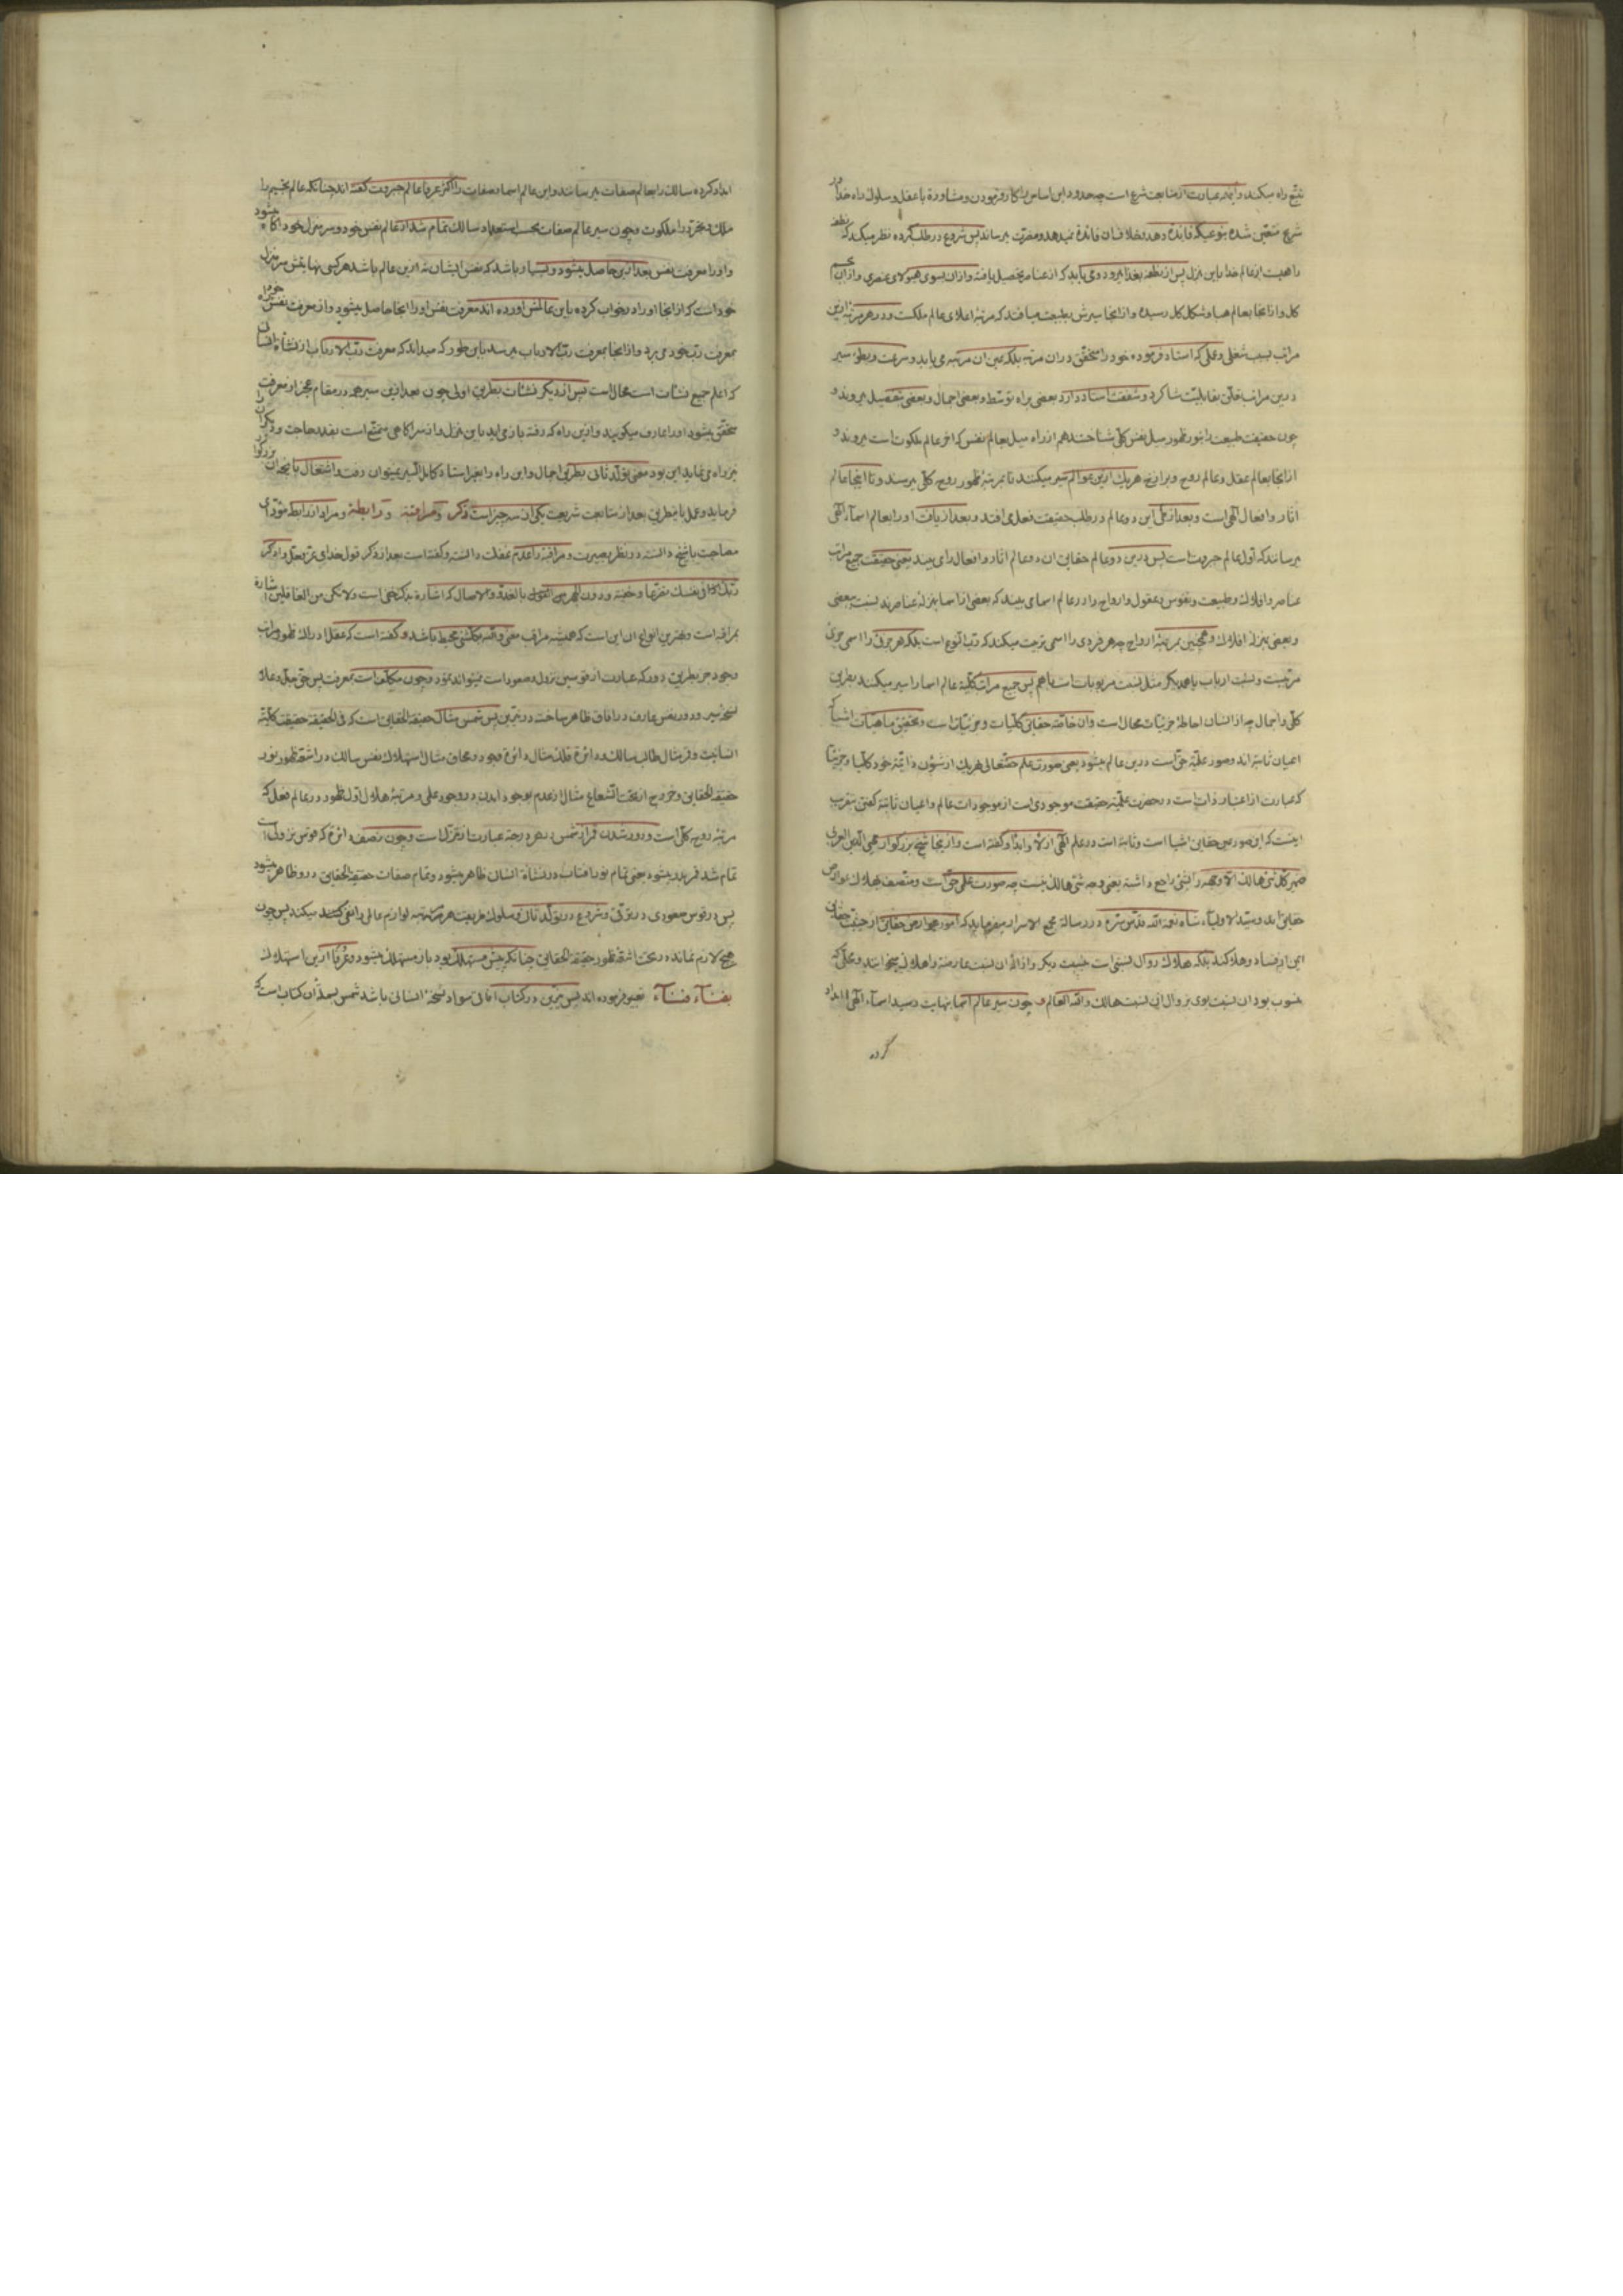 تتبّع راه میکند و این عبارت از متابعت شرع است چه حدود این اساس را کار فرمودن و مشاورة با عقل و سلوك راه خدا
شرع متعیّن شده بنوعیکه فائدة دهد و خلاف آن فائدة نمیدهد و مضرّت میرساند پس شروع در طلب کرده نظر میکند که نطفه
راهیست از عالم غذا باین منزل پس از نطفه بغذا میرود و می یابد که از عناصر تحصیل یافته و از آن بسوی هیولای عنصری و از آن بجسم
کل و از آنجا بعالم هبا و شکل کل رسیده و از آنجا سیرش بطبیعت میافتد که مرتبۀ اعلای عالم ملکست و در هر مرتبۀ ازین
مراتب بسبب شغلی و عملی که استاد فرموده خود را متحقّق در آن مرتبه بلکه عین آن مرتبه می یابد و سرعت و بطوء سیر
درین مراتب تعلّق بقابلیّت شاکرد و شفقت استاد دارد بعضی براه توسّط و بعضی اجمال و بعضی تفصیل میروند و
چون حقیقت طبیعت را بنور ظهور میل نفس کلّی شناختند هم از راه میل بعالم نفس که آخر عالم ملکوت است میروند و
از آنجا بعالم عقل و عالم روح و برای هر یك ازین عوالم سیر میکنند تا بمرتبۀ ظهور روح کلّی میرسند و تا اینجا عالم
آثار و افعال آلهی است و بعد از طی این دو عالم در طلب حقیقت فعل می افتد و بعد از یافت او را بعالم اسماء آلهی
میرساند که اول عالم جبروتست پس درین دو عالم حقایق آن دو عالم آثار و افعال را می بیند یعنی حقیقت جمیع مراتب
عناصر و افلاك و طبیعت و نفوس و عقول و ارواح را در عالم اسما می بیند که بعضی از اسما بمنزلۀ عناصرند نسبت ببعضی
و بعضی بمنزلۀ افلاك و همچنین بمرتبۀ ارواح چه هر فردی را اسمی تربیت میکند که ربّ النوع است بلکه هر جزئی را اسمی جزئی
مرتبیست و نسبت ارباب با همدیکر مثل نسبت مربوبات است با هم پس جمیع مراتب کلّیّۀ عالم اسما را سیر میکند بطریق
کلّی و اجمال چه از انسان احاطۀ جزئیات محال است و آن خاصّۀ حقایق کلّیات و جزئیات است و تحقیق ماهیّات اشیا که
اعیان ثابته اند و صور علمیّۀ حق است درین عالم میشود یعنی صورت علم حقتعالی هر یك از شؤن ذاتیّۀ خود کلّیا و جزئیا
که عبارت از اعتبار ذات است در حضرت علمیّه حقیقت موجودی است از موجودات عالم و اعیان ثابته کفتن بتقریب
اینست که این صور عین حقایق اشیا است و ثابته است در علم آلهی ازلا و ابدا و کفته است و از ینجا شیخ بزرکوار محیی الدین العربی
ضمیر کل شئ هالك الا وجهه را بشئ راجع داشته یعنی وجه شئ هالك نیست چه صورت علمی حق است و متصف بهلاك عوارض
حقایق اند و سیّد الاولیاء شاه نعمة الله قدّس سرّه در رسالۀ مجمع الاسرار میفرماید که امور عوارض حقایق از حیثیت حقایق
این از فساد و هلاکند بلکه هلاك زوال نسبتی است بنسبت دیکر و از الۀ آن نسبت عارضه را هلاك میخوانند و محلّی که
منسوب بود آن نسبت بوی بزوال این نسبت هالك والله العالم و چون سیر عالم اسما بنهایت رسید اسماء آلهی امداد
کرده
امداد کرده سالك را بعالم صفات میرسانند و این عالم اسما و صفات را اکثر عرفا عالم جبروت کفته اند چنانکه عالم تجسیم را
ملك و تجرّد را ملکوت و چون سیر عالم صفات بحسب استعداد سالك تمام شد از عالم نفس خود و سر منزل خود آکاه میشود
و او را معرفت نفس بعد ازین حاصل میشود و بسیار باشد که نفس ایشان نه ازین عالم باشد هر کس نهایتش سر منزل
خود است که از آنجا او را در خواب کرده باین عالمش آورده اند معرفت نفس او را آنجا حاصل میشود و از معرفت نفس خود
بمعرفت ربّ خود می برد و از آنجا بمعرفت ربّ الارباب میرسد باین طور که میداند که معرفت ربّ الارباب از نشاة انسان
که اعلم جمیع نشآت است محال است پس از دیکر نشآت بطریق اولی چون بعد ازین سیر همه در مقام عجز از معرفت
متحقّق میشود او را عارف میکویند و ازین راه که رفته باز می آید باین منزل و از سرآکاهی متمتّع است بقدر حاجت و دیکران را
نیز راه می نماید این بود معنی تولّد ثانی بطریق اجمال و این راه را بغیر استاد کامل السّیر نمیتوان رفت و اشتغال بآنچه آن بزرکوار
فرماید و عمل باینطریق بعد از متابعت شریعت یکی از سه چیز است ذکر و مراقبه و رابطه و مراد از رابطه مؤدّی
مصاحبت با شیخ دانسته در نظر بصیرت و مراقبه را عدم غفلت دانسته و کفته است بعد از ذکر قول خدای عزّ و جل واذکر
ربّك فی نفسك تضرّعا و خیفة و دون الجهر من القول بالغدوّ والاصال که اشارة بذکر خفی است ولا تکن من الغافلین اشارة
بمراقبه است و بهترین انواع آن این است که همیشه مراقب معنی والله بکلّ شئ محیط باشد و کفته است که عقل ادراك ظهور مراتب
وجود جز بطریق دور که عبارت از قوسین نزول و صعود است نمیتواند نمود و چون مکلّف است بمعرفت پس حق جلّ و علا
نسخۀ سیر و دور نفس عارف در آفاق ظاهر ساخته در نیّرین پس شمس مثال حقیقة الحقایق است که فی الحقیقة حقیقت کلّیّه
انسانیت و قمر مثال طالب سالك و دائرۀ فلك مثال دائرۀ وجود و محاق مثال استهلاك نفس سالك در اشعّۀ ظهور نور
حقیقة الحقایق و خروج از تحت الشعاع مثال از عدم بوجود آمدن در وجود علمی و مرتبۀ هلال اوّل ظهور در عالم فعل که
مرتبه روح کلّی است و دور شدن قمر از شمس در هر درجه عبارت از تنزّل است و چون نصف دائرۀ که قوس نزولی است
تمام شد قمر بدر میشود یعنی تمام نور آفتاب در نشاة انسان ظاهر میشود و تمام صفات حقیقة الحقایق در و ظاهر میشود
پس در قوس صعودی در ترقّی و شروع در تولّد ثانی و سلوك طریقت هر مرتبه لوازم عالمی را نفی میکند پس چون
هیچ لازم نمانده در تحت اشعّۀ ظهور حقیقة الحقایق چنانکه پیش مستهلك بود باز مستهلك میشود و عرفا ازین استهلاك
بفناء فناء تعبیر فرموده اند پس نیّرین در کتاب آفاقی سواد نسخۀ انسانی باشد شمس بسملۀ آن کتاب است که